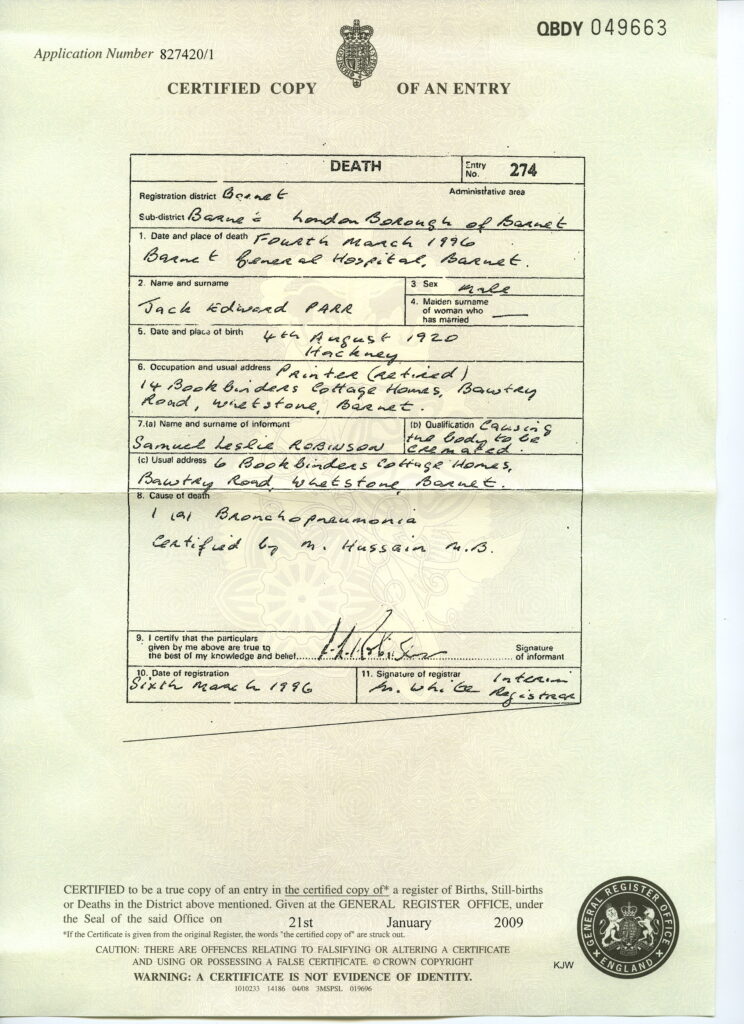 QBDY 049663
Application Number 827420/1
CERTIFIED COPY OF AN ENTRY
DEATH
Entry No. 274
Registration district Barnet
Administrative area
Sub-district Barnet London Borough of Barnet
1. Date and place of death Fourth March 1996
Barnet General Hospital, Barnet.
2. Name and surname
Jack Edward PARR
3 Sex Male
4. Maiden surname
of woman who
has married —
5. Date and place of birth 4th August 1920
Hackney
6. Occupation and usual address Printer (retired)
14 Bookbinders Cottage Homes, Bawtry
Road, Whetstone, Barnet.
7.(a) Name and surname of informant
Samuel Leslie ROBINSON
(b) Qualification Causing
the body to be
cremated.
(c) Usual address 6 Bookbinders Cottage Homes,
Bawtry Road, Whetstone, Barnet.
8. Cause of death
I (a) Bronchopneumonia
Certified by M. Hussain M.B.
9. I certify that the particulars
given by me above are true to
the best of my knowledge and belief
Signature
of informant
10. Date of registration
Sixth March 1996
11. Signature of registrar
M. White Interim
Registrar
CERTIFIED to be a true copy of an entry in the certified copy of* a register of Births, Still-births
or Deaths in the District above mentioned. Given at the GENERAL REGISTER OFFICE, under
the Seal of the said Office on 21st January 2009
*If the Certificate is given from the original Register, the words "the certified copy of" are struck out.
CAUTION: THERE ARE OFFENCES RELATING TO FALSIFYING OR ALTERING A CERTIFICATE
AND USING OR POSSESSING A FALSE CERTIFICATE. © CROWN COPYRIGHT
WARNING: A CERTIFICATE IS NOT EVIDENCE OF IDENTITY.
1010233 14186 04/08 3MSPSL 019696
KJW
GENERAL REGISTER OFFICE
ENGLAND